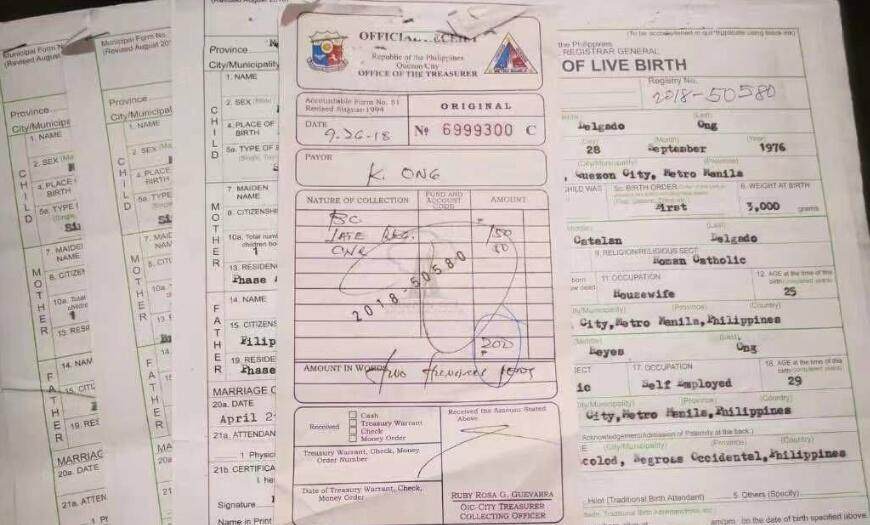 Municipal Form N
(Revised August 20
Province
City/Municip
1. NAME
2. SEX (Ma
4. PLACE
BIRTH
5a. TYPE
CHILD
7. MAIDE
NAME
8. CITIZEN
10a. Total
1
13. RESI
MOTHER
14. NAM
15. CITI
19. RES
FATHER
MARRIAG
20a. DATE
21a. ATTEN
Municipal Form No
(Revised August 201
Province
City/Municipa
1. NAME
2. SEX (Ma
4. PLACE
BIRTH
5a. TYPE
CHILD
7. MAID
NAME
8. CITI
10a. Total
1
13.
MOTHER
14.
15.
FATHER
MARR
20a. DATE
21a.
Province
City/Municipality
1. NAME
2. SEX
4. PLACE OF
BIRTH
5a. TYPE OF B
CHILD
7. MAIDEN
NAME
8. CITIZENSHI
10a. Total num
children bo
1
13. RESIDEN
Phase
MOTHER
14. NAME
15. CITIZENS
Filip
19. RESIDE
Phase
FATHER
MARRIAGE O
20a. DATE
April 2
21a. ATTENDAN
1 Physici
21b. CERTIFICA
I he
Signature
Name in Print
OFFICIAL RECEIPT
Republic of the Philippines
Quezon City
OFFICE OF THE TREASURER
METRO MANILA
Accountable Form No. 51
Revised August 1994
ORIGINAL
DATE
9-26-18
No 6999300 C
PAYOR
K. ONG
NATURE OF COLLECTION
FUND AND
ACCOUNT
CODE
AMOUNT
BC
LATE REG. 150
2018-50580
200
AMOUNT IN WORDS
Received
Cash
Treasury Warrant
Check
Money Order
Received the Amount Stated
Above
Treasury Warrant, Check, Money
Order Number
Date of Treasury Warrant, Check,
Money Order
RUBY ROSA G. GUEVARRA
OIC CITY TREASURER
COLLECTING OFFICER
(To be accomplished in quadruplicate using black ink)
the Philippines
REGISTRAR GENERAL
OF LIVE BIRTH
Registry No.
2018-50580
Delgado Ong
(Day) (Month) (Year)
28 September 1976
(City/Municipality) (Province)
Quezon City, Metro Manila
CHILD WAS
5c. BIRTH ORDER
6. WEIGHT AT BIRTH
First 3,000 grams
Catelan Delgado
9. RELIGION/RELIGIOUS SECT
Roman Catholic
11. OCCUPATION
12. AGE at the time of this
Housewife 25
(Province) (Country)
City,Metro Manila,Philippines
Reyes Ong
17. OCCUPATION
18. AGE at the time of this
ic Self Employed 29
(City/Municipality) (Province) (Country)
City,Metro Manila,Philippines
Acknowledgement/Admission of Paternity at the back.)
(Province) (Country)
colod, Negros Occidental,Philippines
Hilot (Traditional Birth Attendant) 5. Others (Specify)
am/pm on the date of birth specified above.